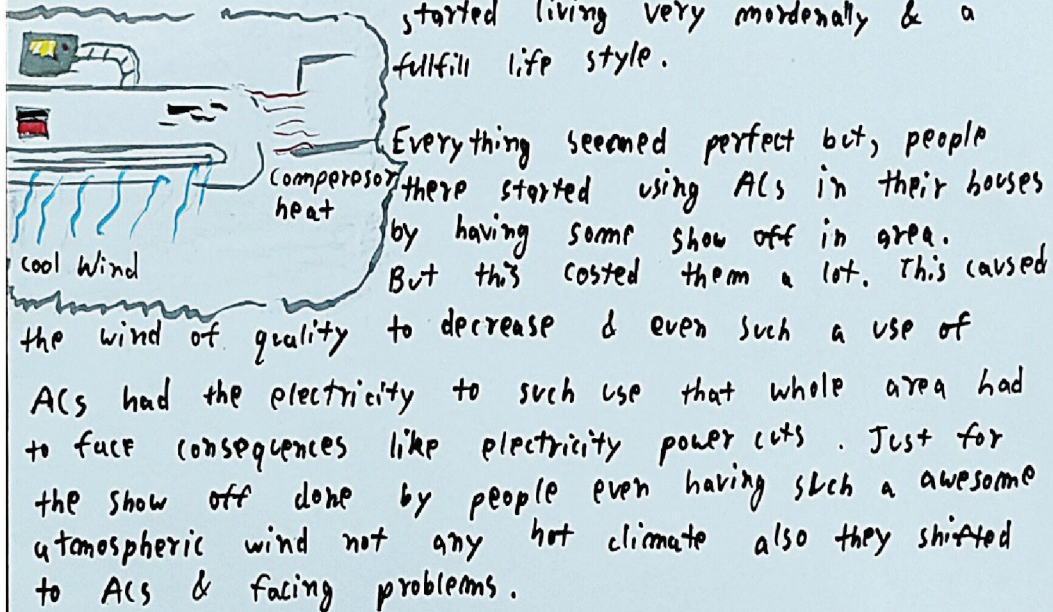 started living very mordenally & a
fullfill life style.
Everything seemed perfect but, people
there started using ACs in their houses
by having some show off in area.
But this costed them a lot. This caused
the wind of quality to decrease & even such a use of
ACs had the electricity to such use that whole area had
to face consequences like electricity power cuts. Just for
the show off done by people even having such a awesome
atomospheric wind not any hot climate also they shifted
to ACs & facing problems.
comperesor
heat
cool Wind